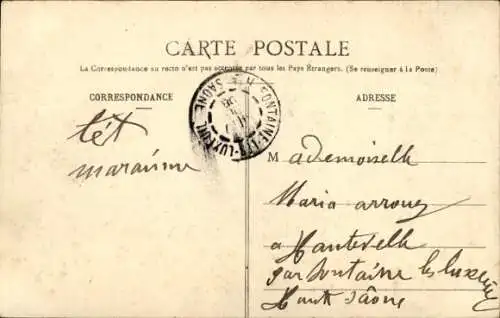 CARTE POSTALE
La Correspondance au recto n'est pas acceptée par tous les Pays Étrangers. (Se renseigner à la Poste)
CORRESPONDANCE
ADRESSE
FONTAINE-LES-LUXEUIL
Hte SAONE
Mademoiselle
Maria
a Hautevelle
par fontaine les luxeuil
Haute Saône